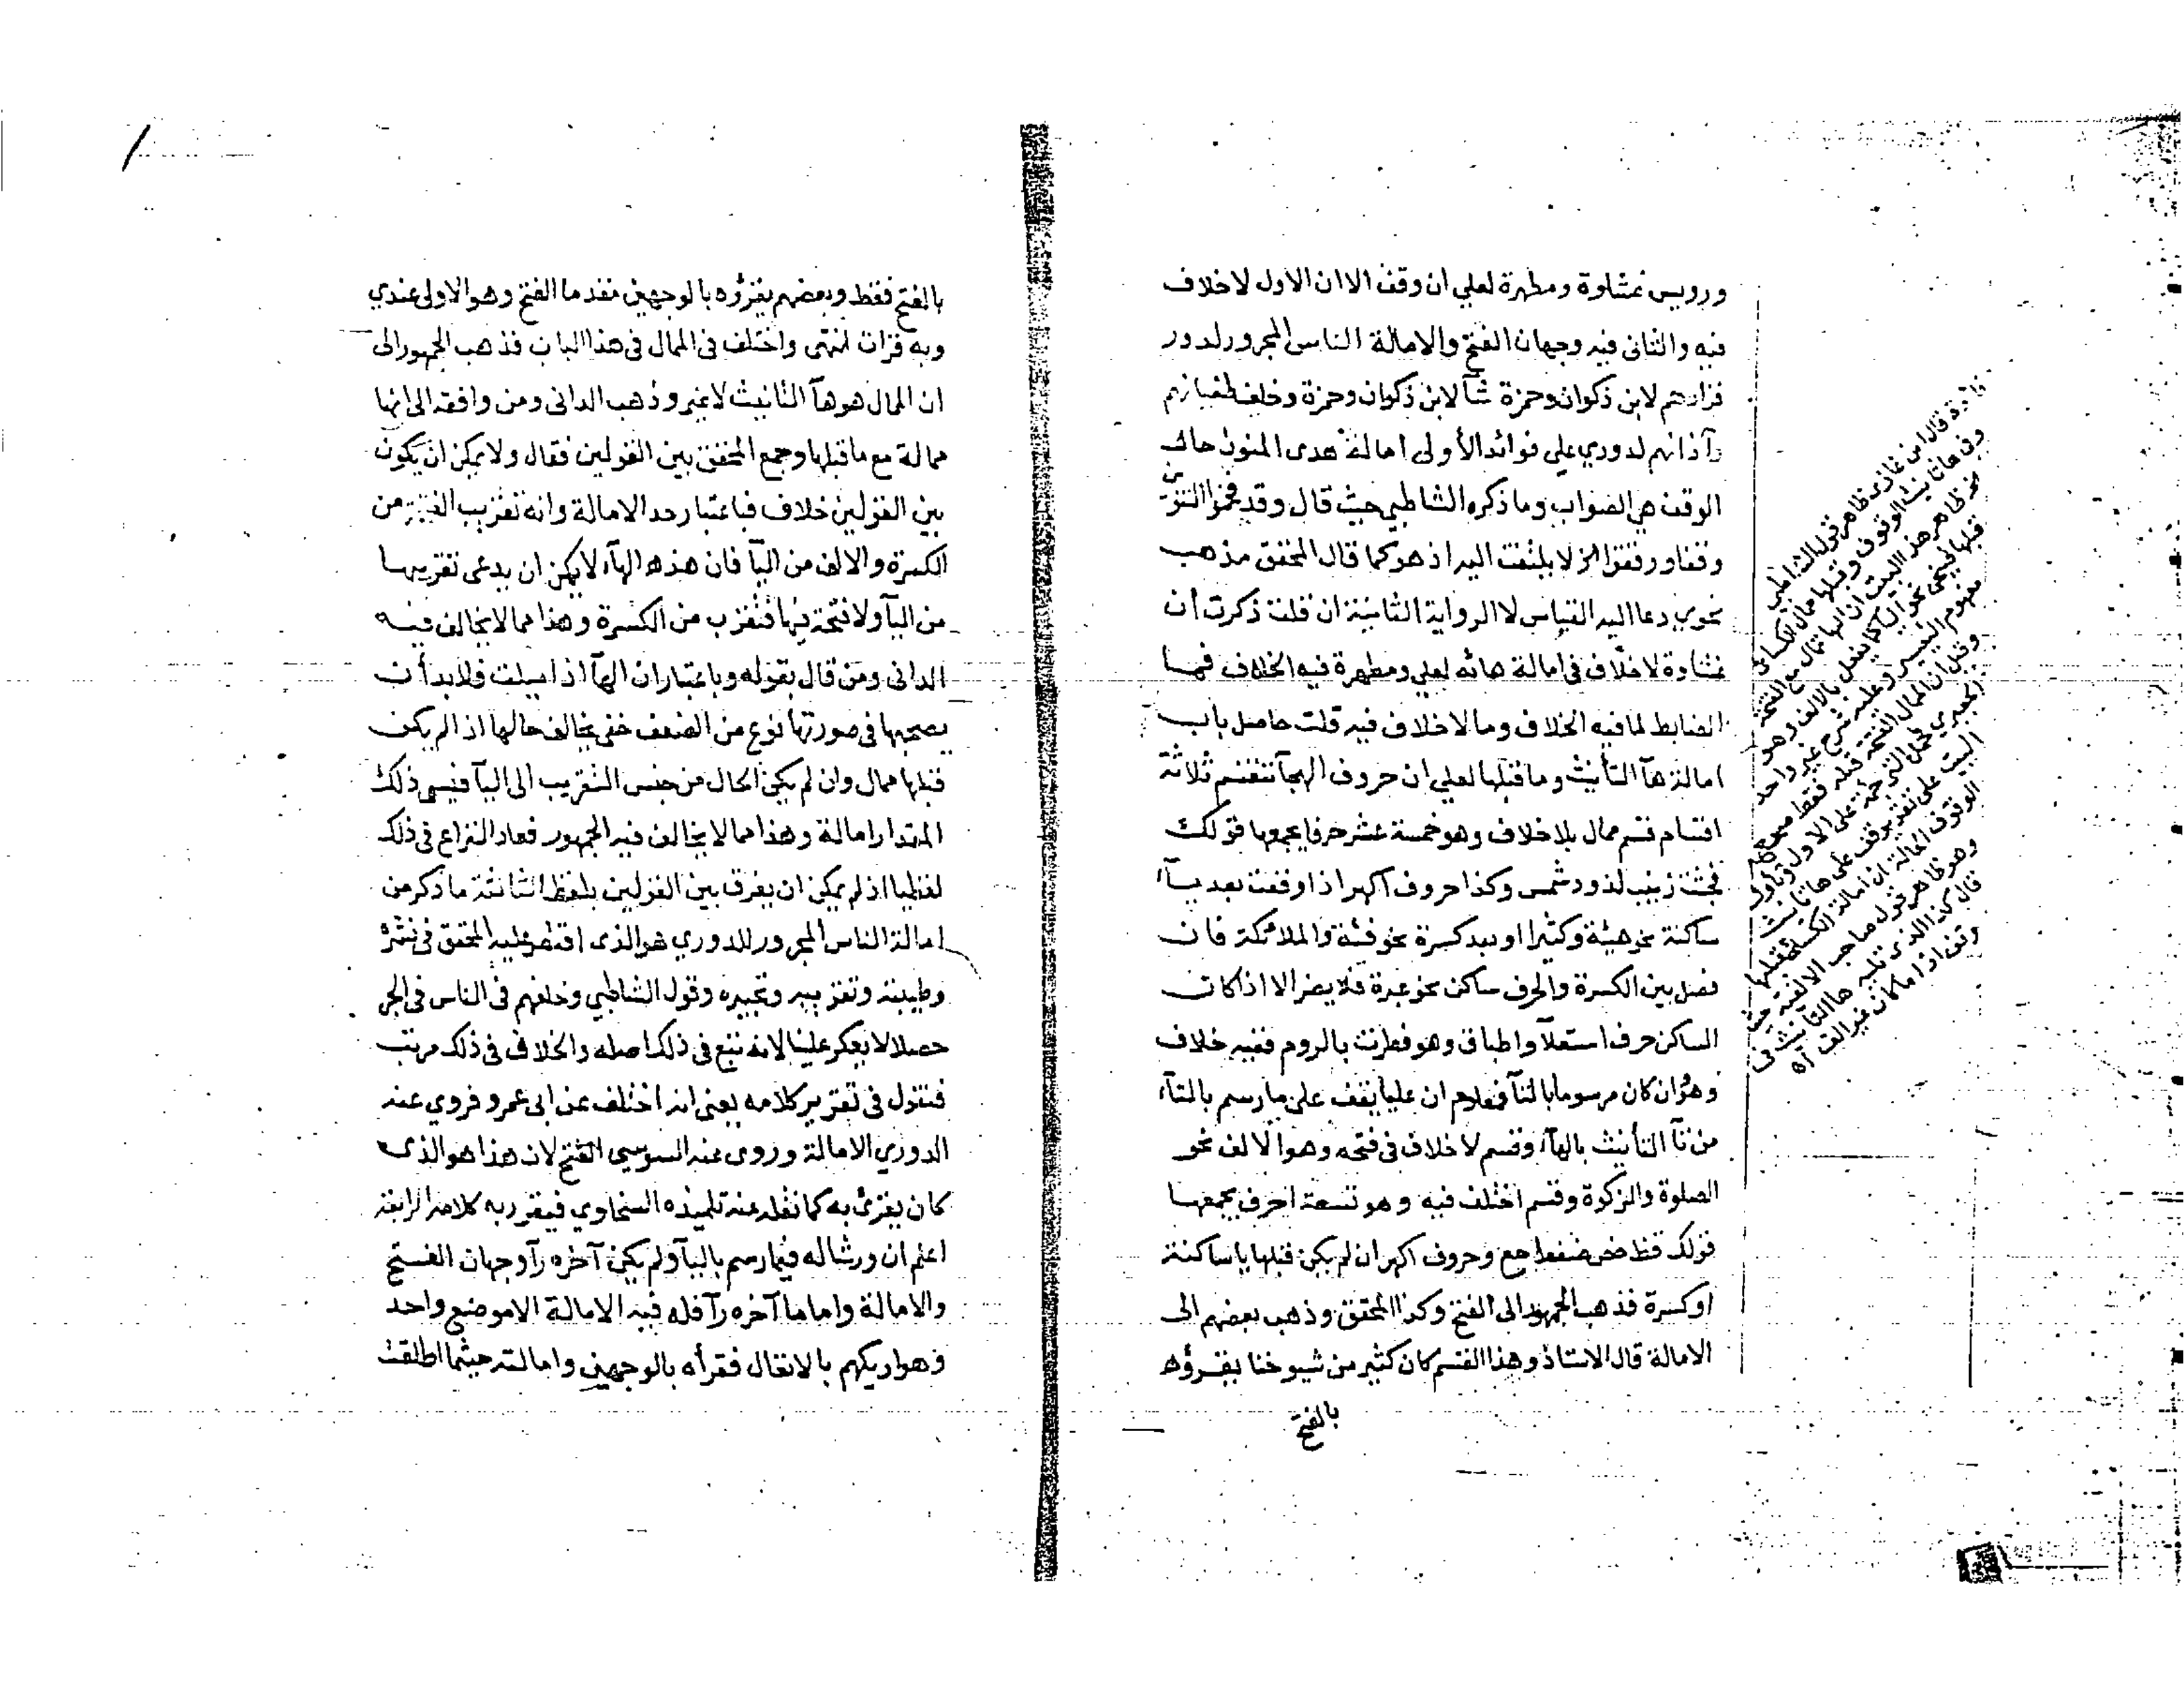 ورويس غشاوة ومطهرة لعلي ان وقف الا ان الاول لا خلاف
فيه والثاني فيه وجهان الفتح والامالة الناس المجرور لدور
فزادهم لابن ذكوان وحمزة شآ لابن ذكوان وحمزة وخلف طغيانهم
آذانهم لدوري علي فوائد الأولى امالة هدى المنون حالة
الوقف هي الصواب وما ذكره الشاطبي حيث قال وقد فخموا التنوين
وقفا ورققوا الخ لا يلتفت اليه اذ هو كما قال المحقق مذهب
نحوي دعا اليه القياس لا الرواية الثانية ان قلت ذكرت أن
غشاوة لا خلاف في امالة هائه لعلي ومطهرة فيه الخلاف فما
الضابط لما فيه الخلاف وما لا خلاف فيه قلت حاصل باب
امالة هآ التأنيث وما قبلها لعلي ان حروف الهجآ تنقسم ثلاثة
اقسام قسم ممال بلا خلاف وهو خمسة عشر حرفا يجمعها قولك
فجثت زينب لذود شمس وكذا حروف اكهر اذا وقعت بعد يآء
ساكنة نحو هيئة وكثيرا او بعد كسرة نحو فئة والملائكة فان
فصل بين الكسرة والحرف ساكن نحو عبرة فلا يضر الا اذا كان
الساكن حرف استعلآ واطباق وهو فطرت بالروم ففيه خلاف
وهو ان كان مرسوما بالتآ فمعلوم ان عليا يقف على ما رسم بالتآء
من تآ التأنيث بالهآء وقسم لا خلاف في فتحه وهو الالف نحو
الصلوة والزكوة وقسم اختلف فيه وهو تسعة احرف يجمعها
قولك قظ خص ضغط حع وحروف اكهر ان لم يكن قبلها يا ساكنة
او كسرة فذهب الجمهور الى الفتح وكذا المحقق وذهب بعضهم الى
الامالة قال الاستاذ وهذا القسم كان كثير من شيوخنا يقرؤه
بالفتح
قال ابن غازى ظاهر قول الشاطبي
وفي هاتانيث الوقوف وقبلها ممال الكسائي
ظاهر هذا البيت ان الها تمال مع الفتحة
قبلها فينحى نحو اليا كما يفعل بالالف وهو
مفهوم التيسير وعليه شرح غير واحد
وقيل ان الممال الفتحة قبله فقط
الجعبري حمل الترجمة على الاول وتاول
البيت على
وهو ظاهر قول صاحب الالفية حيث
قال كذا الذي تليه ها التانيث في
وقف اذا ما كان غير الف اه
بالفتح فقط وبعضهم يقرؤه بالوجهين مقدما الفتح وهو الاولى عندي
وبه قرات انتهى واختلف في الممال في هذا الباب فذهب الجمهور الى
ان الممال هو هآ التانيث لا غير وذهب الداني ومن وافقه الى انها
ممالة مع ما قبلها وجمع المحقق بين القولين فقال ولا يمكن ان يكون
بين القولين خلاف فباعتبار حد الامالة وانه تقريب الفتحة من
الكسرة والالف من اليآ فان هذه الهآء لا يمكن ان يدعى تقريبها
من اليآ ولا فتحة فيها فتقرب من الكسرة وهذا مما لا يخالف فيه
الداني ومن قال بقوله وباعتبار ان الهآ اذا اميلت فلا بد أن
يصحبها في صورتها نوع من الضعف خفي يخالف حالها اذا لم يكن
قبلها ممال وان لم يكن الحال من جنس التقريب الى اليآ فيسمى ذلك
المقدار امالة وهذا مما لا يخالف فيه الجمهور فعاد النزاع في ذلك
لفظيا اذ لم يمكن ان يفرق بين القولين بلفظ الثالثة ما ذكر من
امالة الناس المجرور للدوري هو الذى اقتصر عليه المحقق في نشره
وطيبته وتقريبه وتحبيره وقول الشاطبي وخلفهم في الناس في الجر
حصلا لا يعكر علينا لانه تبع في ذلك اصله والخلاف في ذلك مرتب
فنقول في تقرير كلامه يعني انه اختلف عن ابي عمرو فروي عنه
الدوري الامالة وروى عنه السوسي الفتح لان هذا هو الذى
كان يقرئ به كما نقله عنه تلميذه السخاوي فيقرر به كلامه الرابعة
اعلم ان ورشا له فيما رسم باليآ ولم يكن آخره رآ وجهان الفتح
والامالة واما ما آخره رآ فله فيه الامالة الا موضع واحد
وهو اريكهم بالانفال فقرأه بالوجهين وامالته حيثما اطلقت